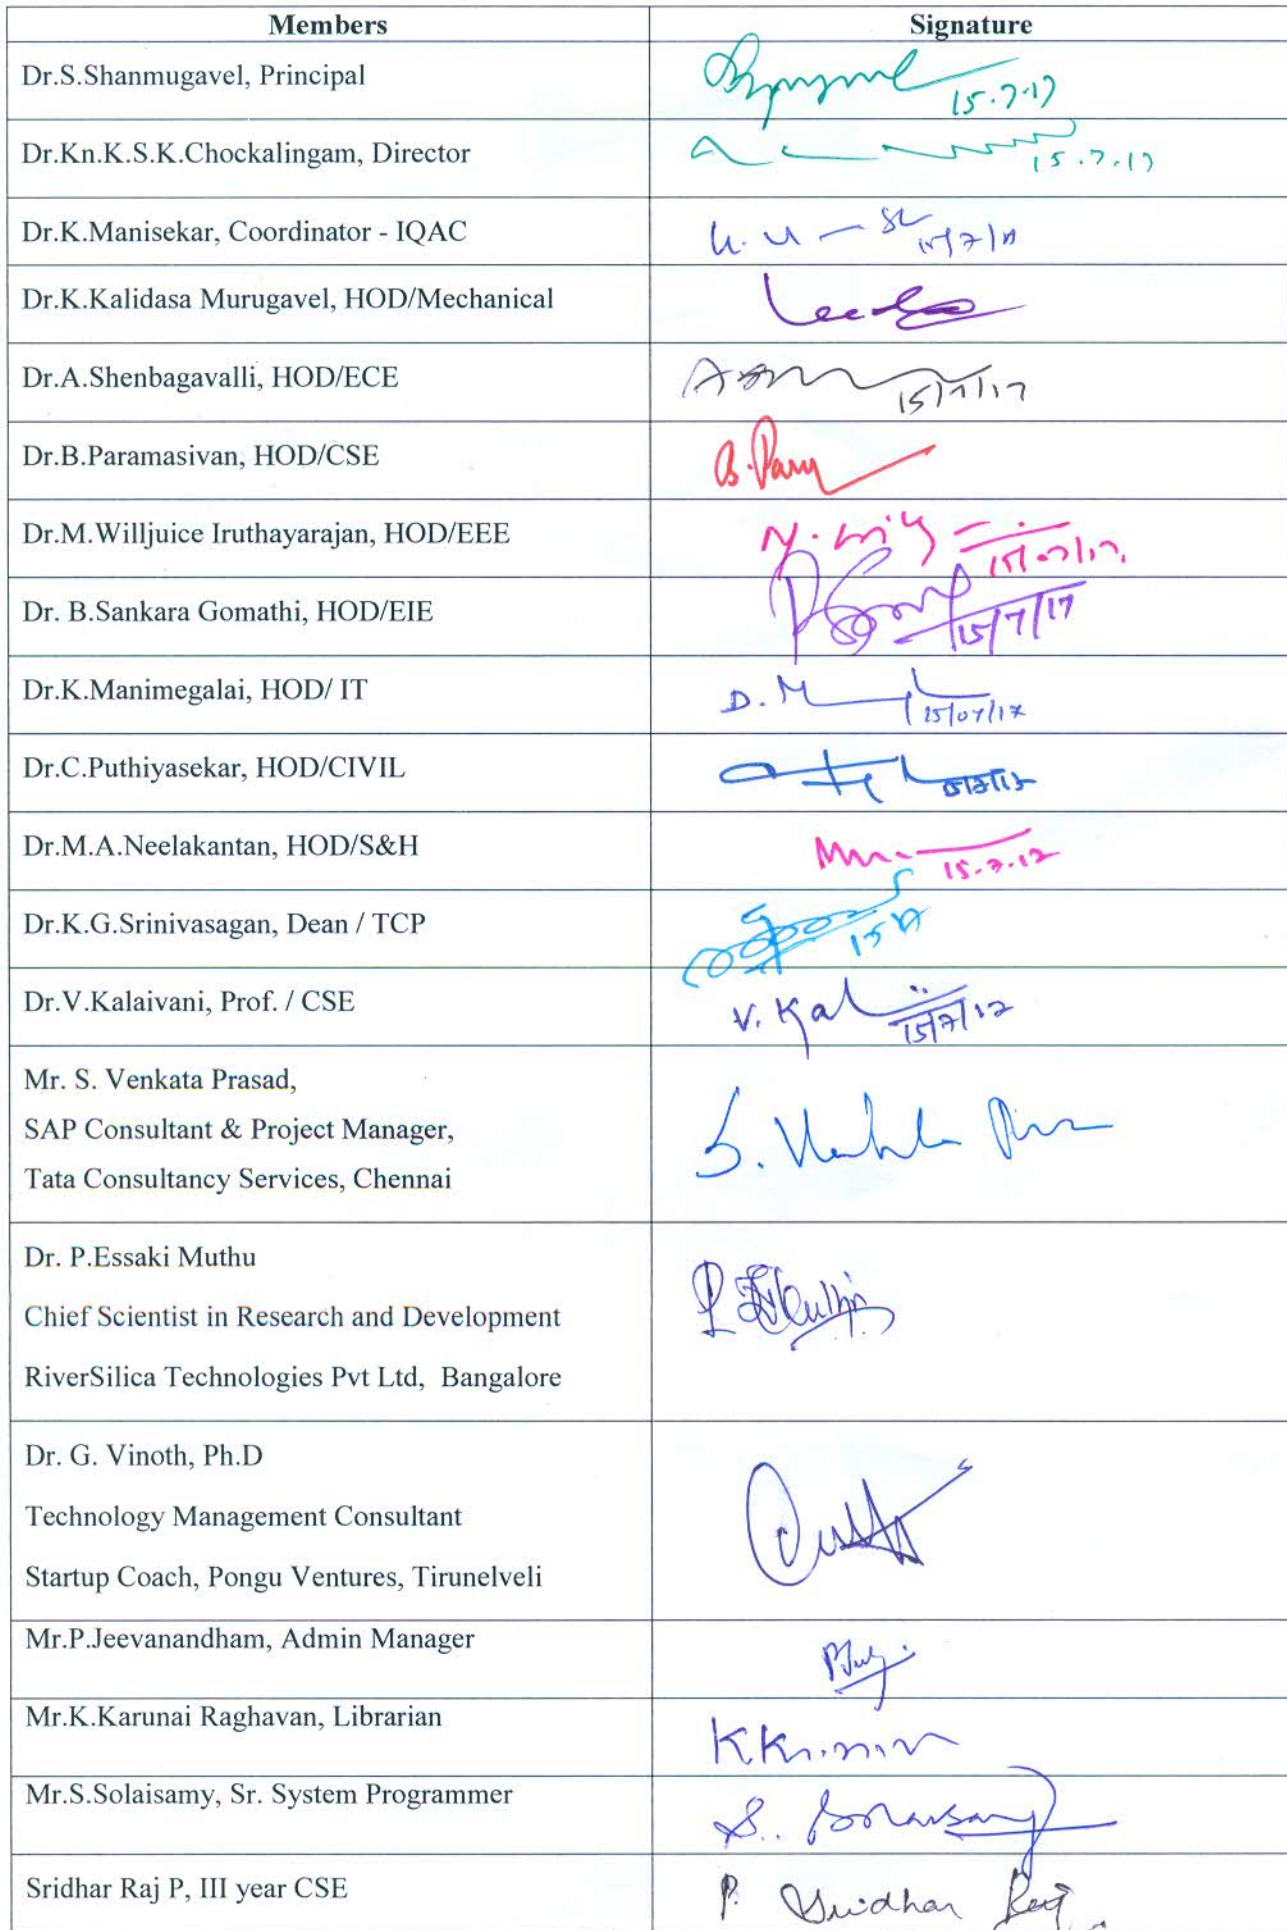 Members Signature
Dr.S.Shanmugavel, Principal 15.7.17
Dr.Kn.K.S.K.Chockalingam, Director 15.7.17
Dr.K.Manisekar, Coordinator - IQAC 15/7/17
Dr.K.Kalidasa Murugavel, HOD/Mechanical
Dr.A.Shenbagavalli, HOD/ECE 15/7/17
Dr.B.Paramasivan, HOD/CSE
Dr.M.Willjuice Iruthayarajan, HOD/EEE 15/07/17
Dr. B.Sankara Gomathi, HOD/EIE 15/7/17
Dr.K.Manimegalai, HOD/ IT 15/07/17
Dr.C.Puthiyasekar, HOD/CIVIL 15/7/17
Dr.M.A.Neelakantan, HOD/S&H 15.7.17
Dr.K.G.Srinivasagan, Dean / TCP
Dr.V.Kalaivani, Prof. / CSE V. Kal 15/7/17
Mr. S. Venkata Prasad,
SAP Consultant & Project Manager,
Tata Consultancy Services, Chennai
Dr. P.Essaki Muthu
Chief Scientist in Research and Development
RiverSilica Technologies Pvt Ltd, Bangalore
Dr. G. Vinoth, Ph.D
Technology Management Consultant
Startup Coach, Pongu Ventures, Tirunelveli
Mr.P.Jeevanandham, Admin Manager
Mr.K.Karunai Raghavan, Librarian
Mr.S.Solaisamy, Sr. System Programmer S. Solaisamy
Sridhar Raj P, III year CSE P. Sridhar Raj